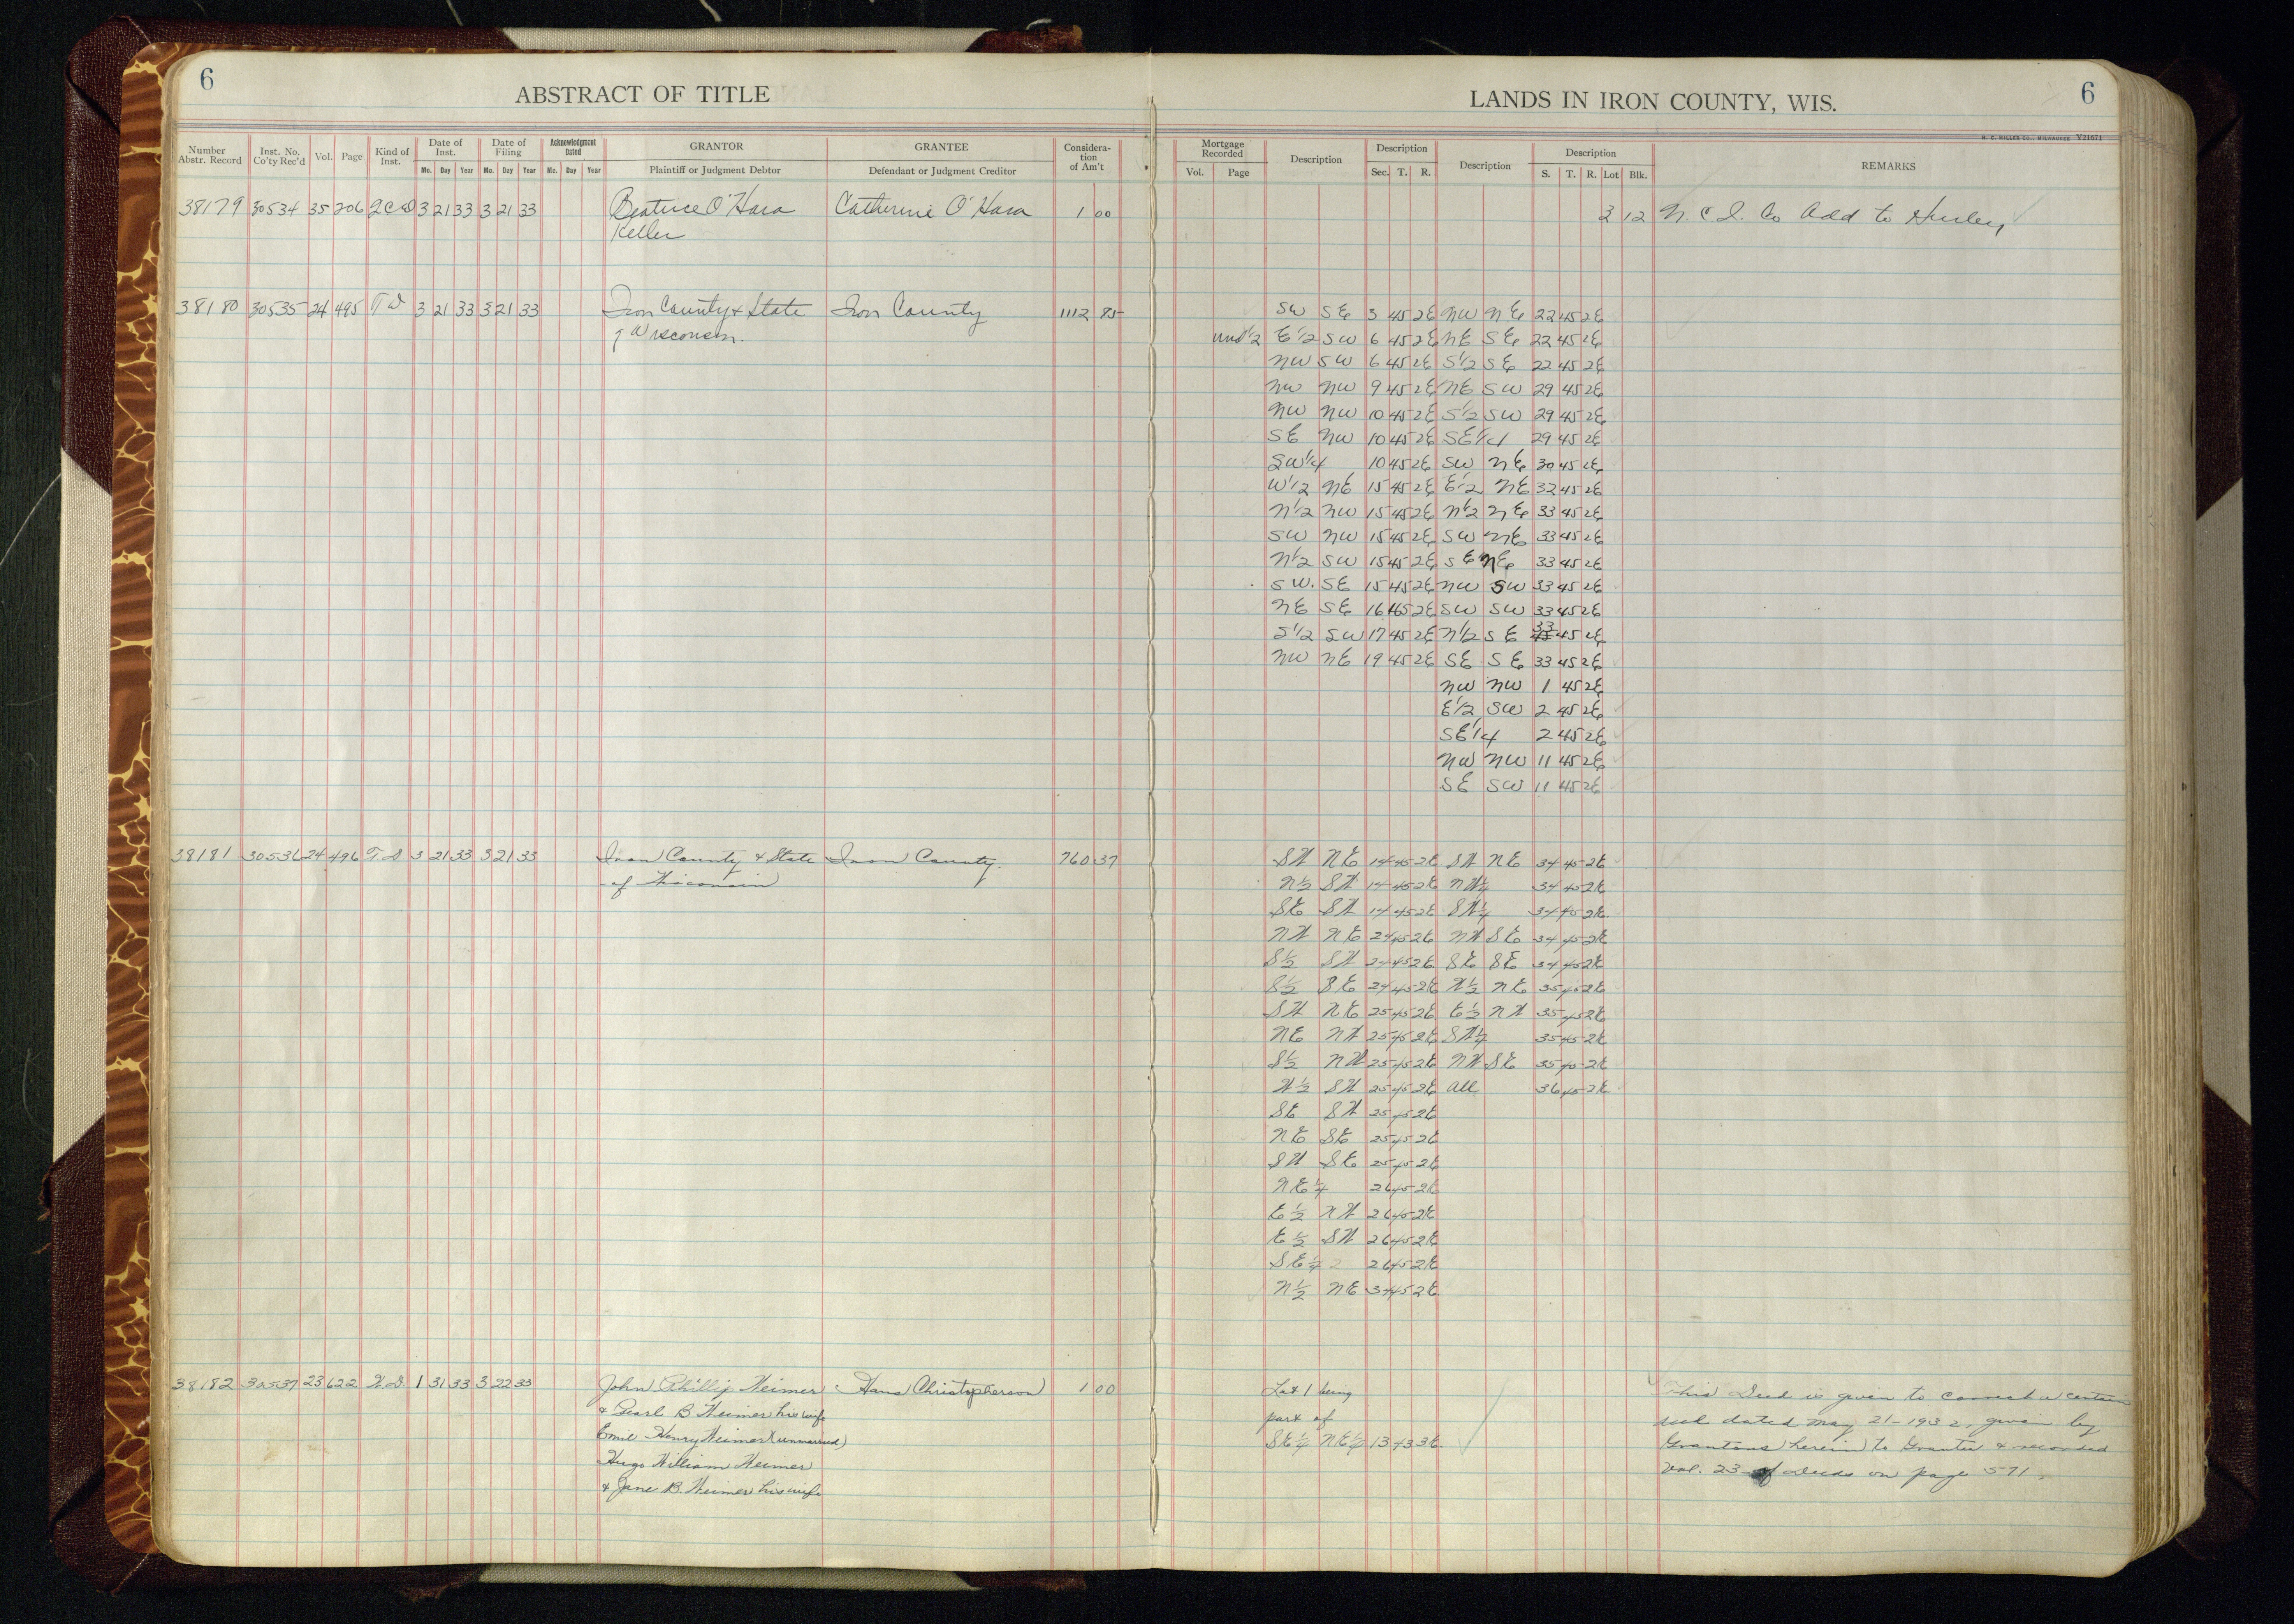 6
ABSTRACT OF TITLE
LANDS IN IRON COUNTY, WIS.
6
H. C. MILLER CO., MILWAUKEE V21671
Number Abstr. Record Inst. No. Co'ty Rec'd Vol. Page Kind of Inst. Date of Inst. Mo. Day Year Date of Filing Mo. Day Year Acknowledgment Dated Mo. Day Year GRANTOR Plaintiff or Judgment Debtor GRANTEE Defendant or Judgment Creditor Considera-tion of Am't Mortgage Recorded Vol. Page Description Description Sec. T. R. Description Description S. T. R. Lot Blk. REMARKS
38179 30534 35 206 QCD 3 21 33 3 21 33 Beatrice O'Hara Catherine O'Hara 1 00 2 12 N. C. I. Co Add to Hurley
Keller
38180 30535 24 495 T D 3 21 33 3 21 33 Iron County & State Iron County 1112 85 SW SE 3 45 2E NW NE 22 45 2E
of Wisconsin. und 1/2 E1/2 SW 6 45 2E NE SE 22 45 2E
NW SW 6 45 2E S1/2 SE 22 45 2E
NW NW 9 45 2E NE SW 29 45 2E
NW NW 10 45 2E S1/2 SW 29 45 2E
SE NW 10 45 2E SE1/4 29 45 2E
SW1/4 10 45 2E SW NE 30 45 2E
W1/2 NE 15 45 2E E1/2 NE 32 45 2E
N1/2 NW 15 45 2E N1/2 NE 33 45 2E
SW NW 15 45 2E SW NE 33 45 2E
N1/2 SW 15 45 2E SE NE 33 45 2E
SW. SE 15 45 2E NW SW 33 45 2E
NE SE 16 45 2E SW SW 33 45 2E
S1/2 SW 17 45 2E N1/2 SE 33 45 2E
NW NE 19 45 2E SE SE 33 45 2E
NW NW 1 45 2E
E1/2 SW 2 45 2E
SE1/4 2 45 2E
NW NW 11 45 2E
SE SW 11 45 2E
38181 30536 24 496 T. D 3 21 33 3 21 33 Iron County & State Iron County. 760 37 SW NE 14 45 2E SW NE 34 45 2E
of Wisconsin N1/2 SW 14 45 2E NW1/4 34 45 2E
SE SW 14 45 2E SW1/4 34 45 2E
NW NE 24 45 2E NW SE 34 45 2E
S1/2 SW 24 45 2E SE SE 34 45 2E
S1/2 SE 24 45 2E W1/2 NE 35 45 2E
SW NE 25 45 2E E1/2 NW 35 45 2E
NE NW 25 45 2E SW1/4 35 45 2E
S1/2 NW 25 45 2E NW SE 35 45 2E
W1/2 SW 25 45 2E all 36 45 2E
SE SW 25 45 2E
NE SE 25 45 2E
SW SE 25 45 2E
NE1/4 26 45 2E
E1/2 NW 26 45 2E
E1/2 SW 26 45 2E
SE1/4 26 45 2E
N1/2 NE 34 45 2E
38182 30537 23 622 W.D. 1 31 33 3 22 33 John Phillip Weimer Hans Christopherson 1 00 Lot 1 being This Deed is given to correct a certain
& Pearl B Weimer his wife part of deed dated May 21-1932, given by
Emil Henry Weimer (unmarried) SE1/4 NE1/4 13 43 3E. Grantors herein to Grantee & recorded
Hugo William Weimer Vol. 23 of Deeds on page 571.
& Jane B. Weimer his wife